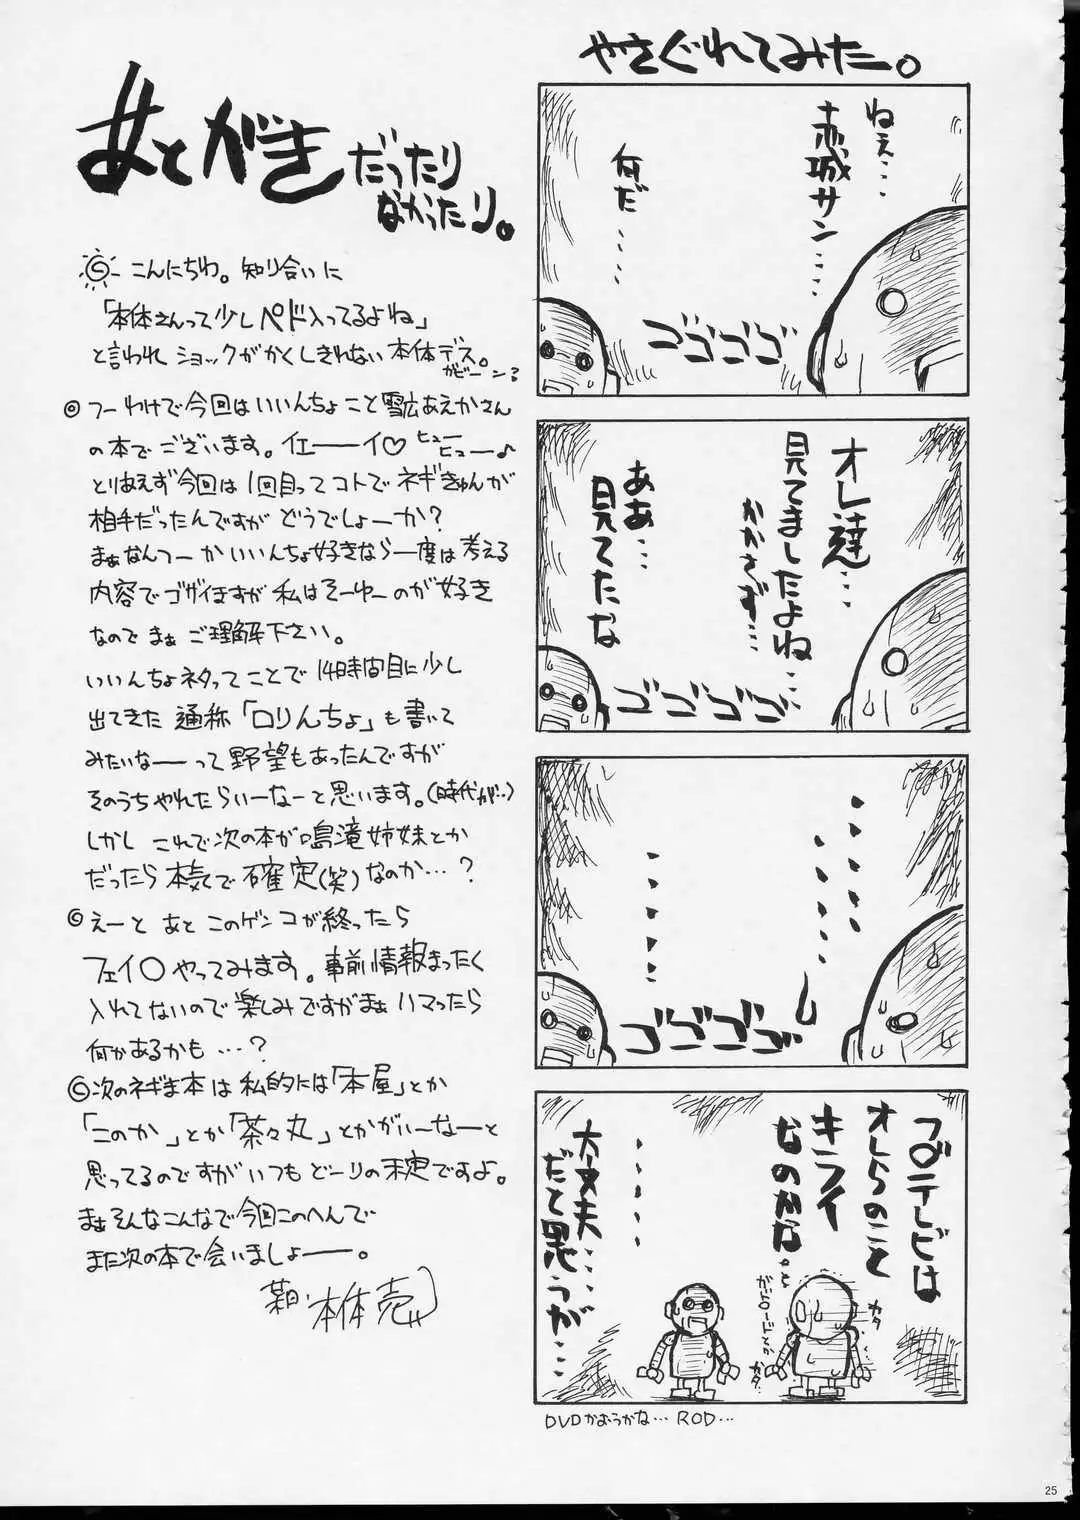 あとがき だったり
なかったり。
こんにちわ。知り合いに
「本体さんって少しペド入ってるよね」
と言われ ショックがかくしきれない本体デス。
ガビーン
つーわけで今回はいいんちょこと雪広あえかさん
の本でございます。イエーーイ♡ ヒュー
ヒュー♪
とりあえず今回は1回目ってコトでネギきゅんが
相手だったんですが どうでしょーか?
まぁなんつーかいいんちょ好きなら一度は考える
内容でゴザイますが 私はそーゆーのが好き
なので まぁ ご理解下さい。
いいんちょネタってことで 14時間目に少し
出てきた 通称「ロりんちょ」も書いて
みたいなーーって野望もあったんですが
そのうちやれたらいーなーと思います。(時代が…)
しかし これで次の本が鳴滝姉妹とか
だったら 本気で確定(笑)なのか…?
えーと あと このゲンコが終ったら
フェイ〇やってみます。事前情報まったく
入れてないので楽しみですがまぁハマったら
何かあるかも…?
次のネギま本は 私的には「本屋」とか
「このか」とか「茶々丸」とかがいーなーと
思ってるのですがいつもどーりの未定ですよ。
まぁそんなこんなで今回このへんで
また次の本で会いましょーー。
本体売
やさぐれてみた。
ねぇ…
赤城サン…
何だ…
ゴゴゴゴゴ
オレ達…
見てましたよね
かかさず…
ああ…
見てたな
ゴゴゴゴ
ゴゴゴゴ
フ〇テレビは
オレらのこと
キライ
なのかな。
ガ〇ロードとか
カタ
カタ
大丈夫…
だと思うが…
DVDかおうかな… ROD…
25